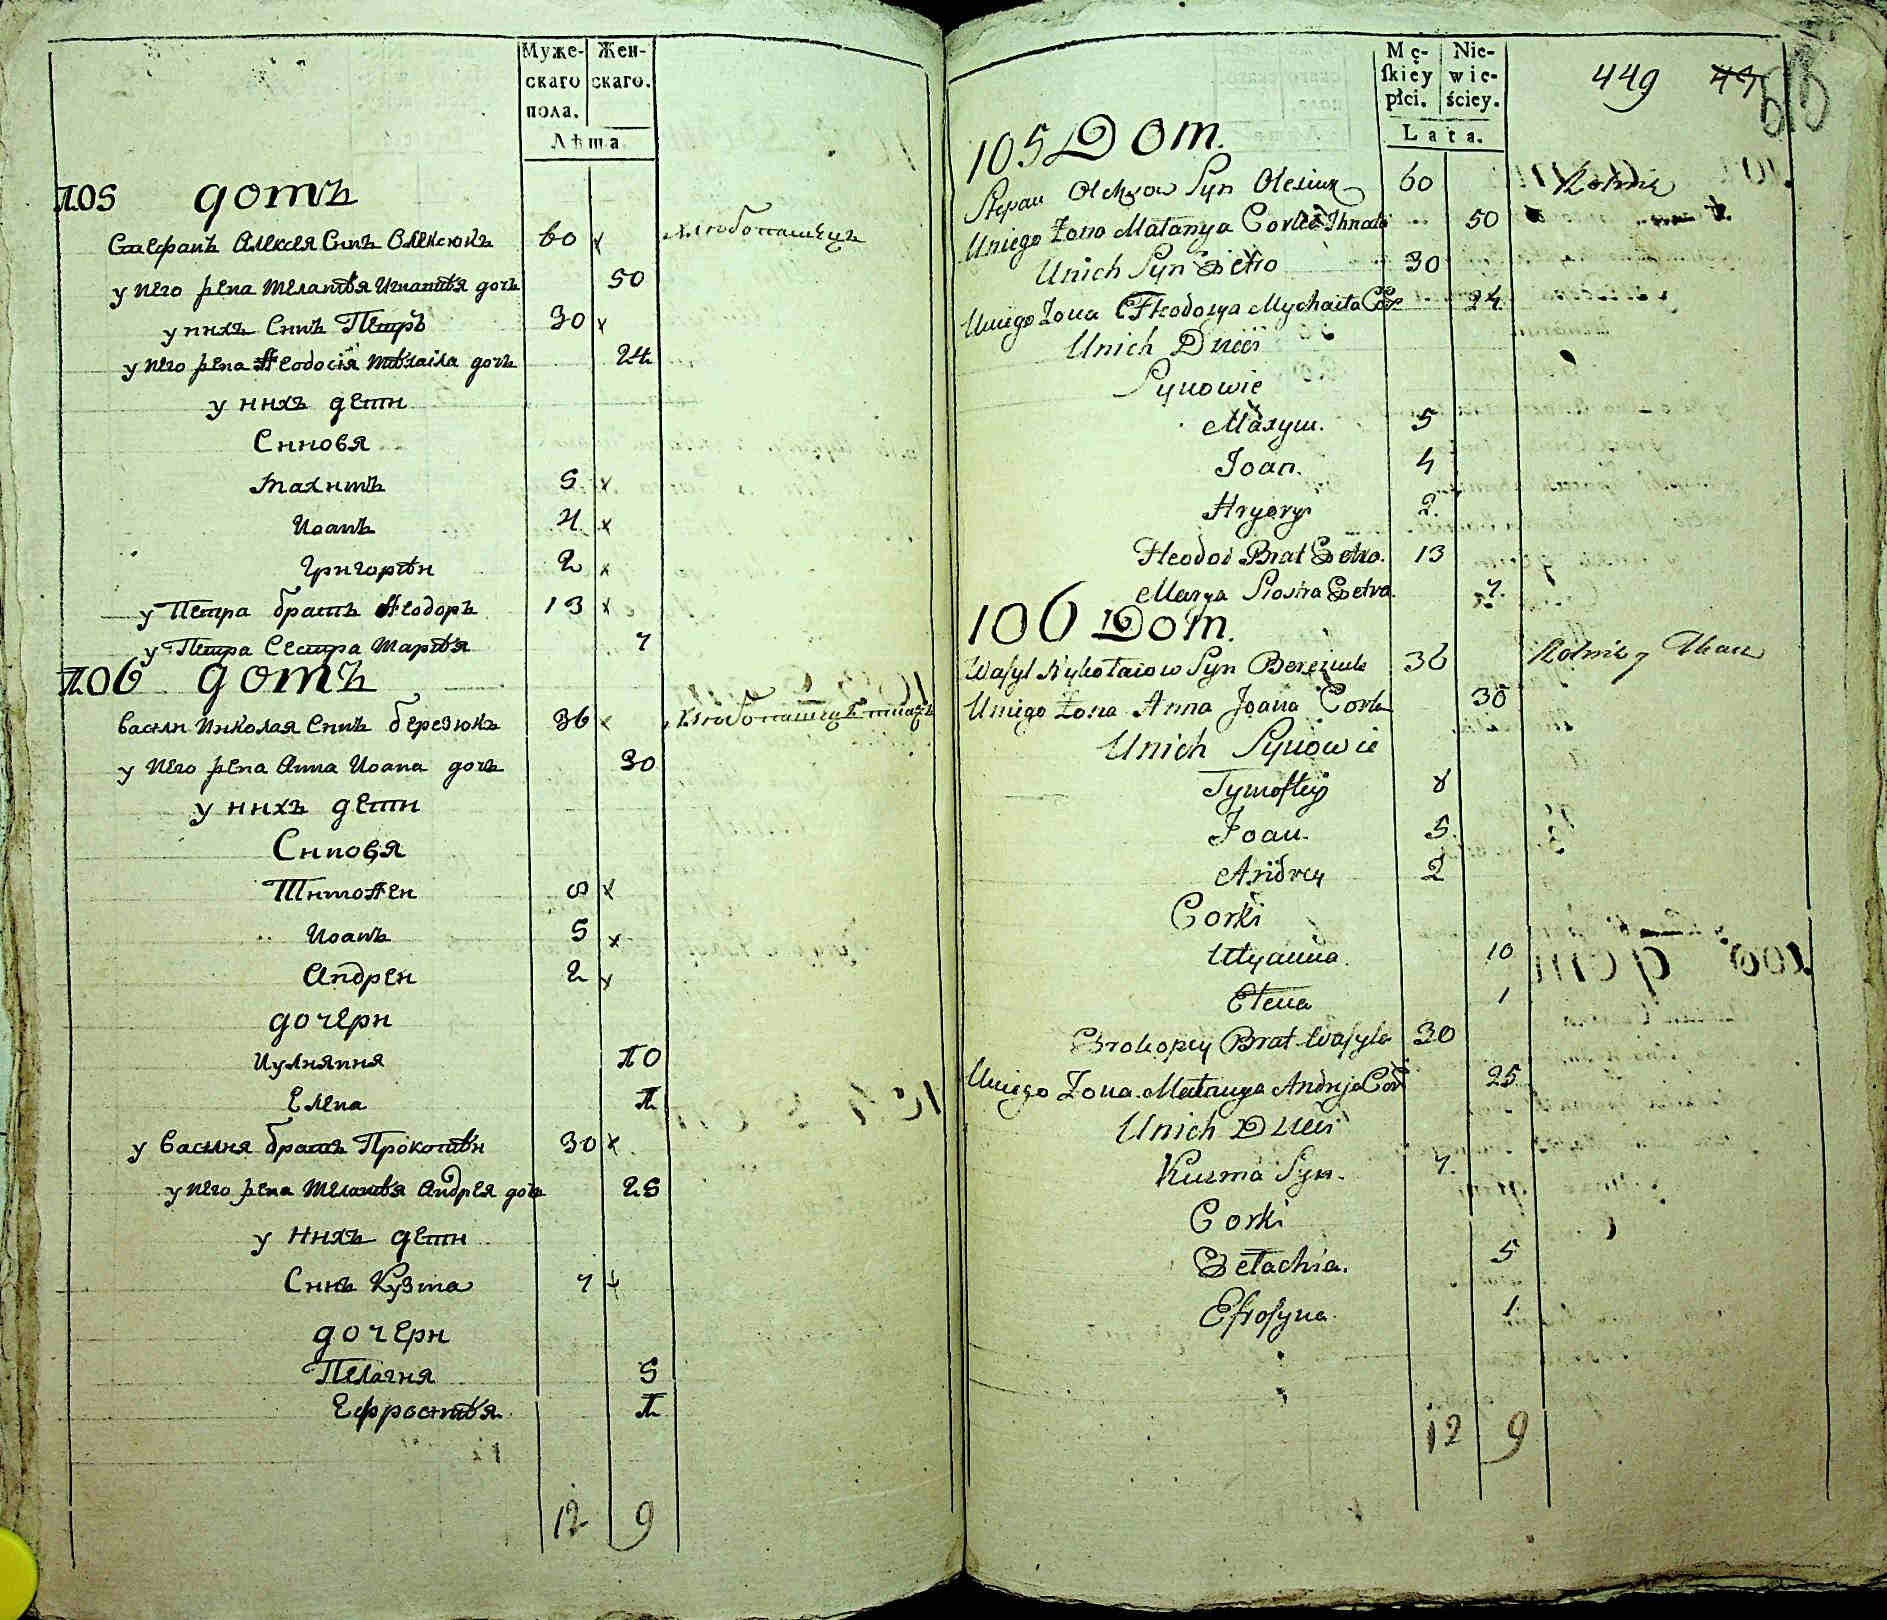 Муже-
скаго
пола.
Жен-
скаго.
Лѣта
105 домъ
Стефанъ Алексея Синъ Олексюкъ 60 х хлѣбопашецъ
у него жена Мелатия Игнатия дочь 50
у нихъ Синъ Петръ 30 х
у него жена Ѳеодосія Михаила дочь 24
у нихъ дети
Синовя
Махимъ 5 х
Иоанъ 4 х
Григорій 2 х
у Петра братъ Ѳеодоръ 13 х
у Петра Сестра Мария 7
106 домъ
Васили Николая Синъ березюкъ 36 х хлѣбопашецъ ткачъ
у него жена Анна Иоана дочь 30
у нихъ дети
Синовя
Тимоѳеи 8 х
Иоанъ 5 х
Андреи 2 х
дочери
Иулияния 10
Елена 1
у Василия братъ Прокопий 30 х
у него жена Мелания Андрея дочь 25
у нихъ дети
Синъ Кузма 7 х
дочери
Пелагия 5
Ефросиния 1
12 9
Mę-
skiey
płci.
Nie-
wie-
ściey.
Lata.
449 49
105 Dom.
Stepan Olexow Syn Olesiuk 60 Rolnik
Uniego Żona Matanya Corka Ihnata 50
Unich Syn Petro 30
Uniego Żona Fteodosya Mychaiła Cor 24
Unich Dzieci
Synowie
Maxym. 5
Joan. 4
Hryory 2.
Fteodor Brat Petro. 13
Marya Siostra Petra. 7.
106 Dom.
Wasyl Nykołaiow Syn Bereziuk 36 Rolnik y Tkacz
Uniego Żona Anna Joana Corka 30
Unich Synowie
Tymoftey 8
Joan. 5.
Andrey 2
Corki
Ulyanna. 10
Elena 1
Prokopiy Brat Wasyla 30
Uniego Żona Malanya Andreja Cor 25
Unich Dzieci
Kuzma Syn. 7.
Corki
Pełachia. 5
Efrosyna. 1
12 9